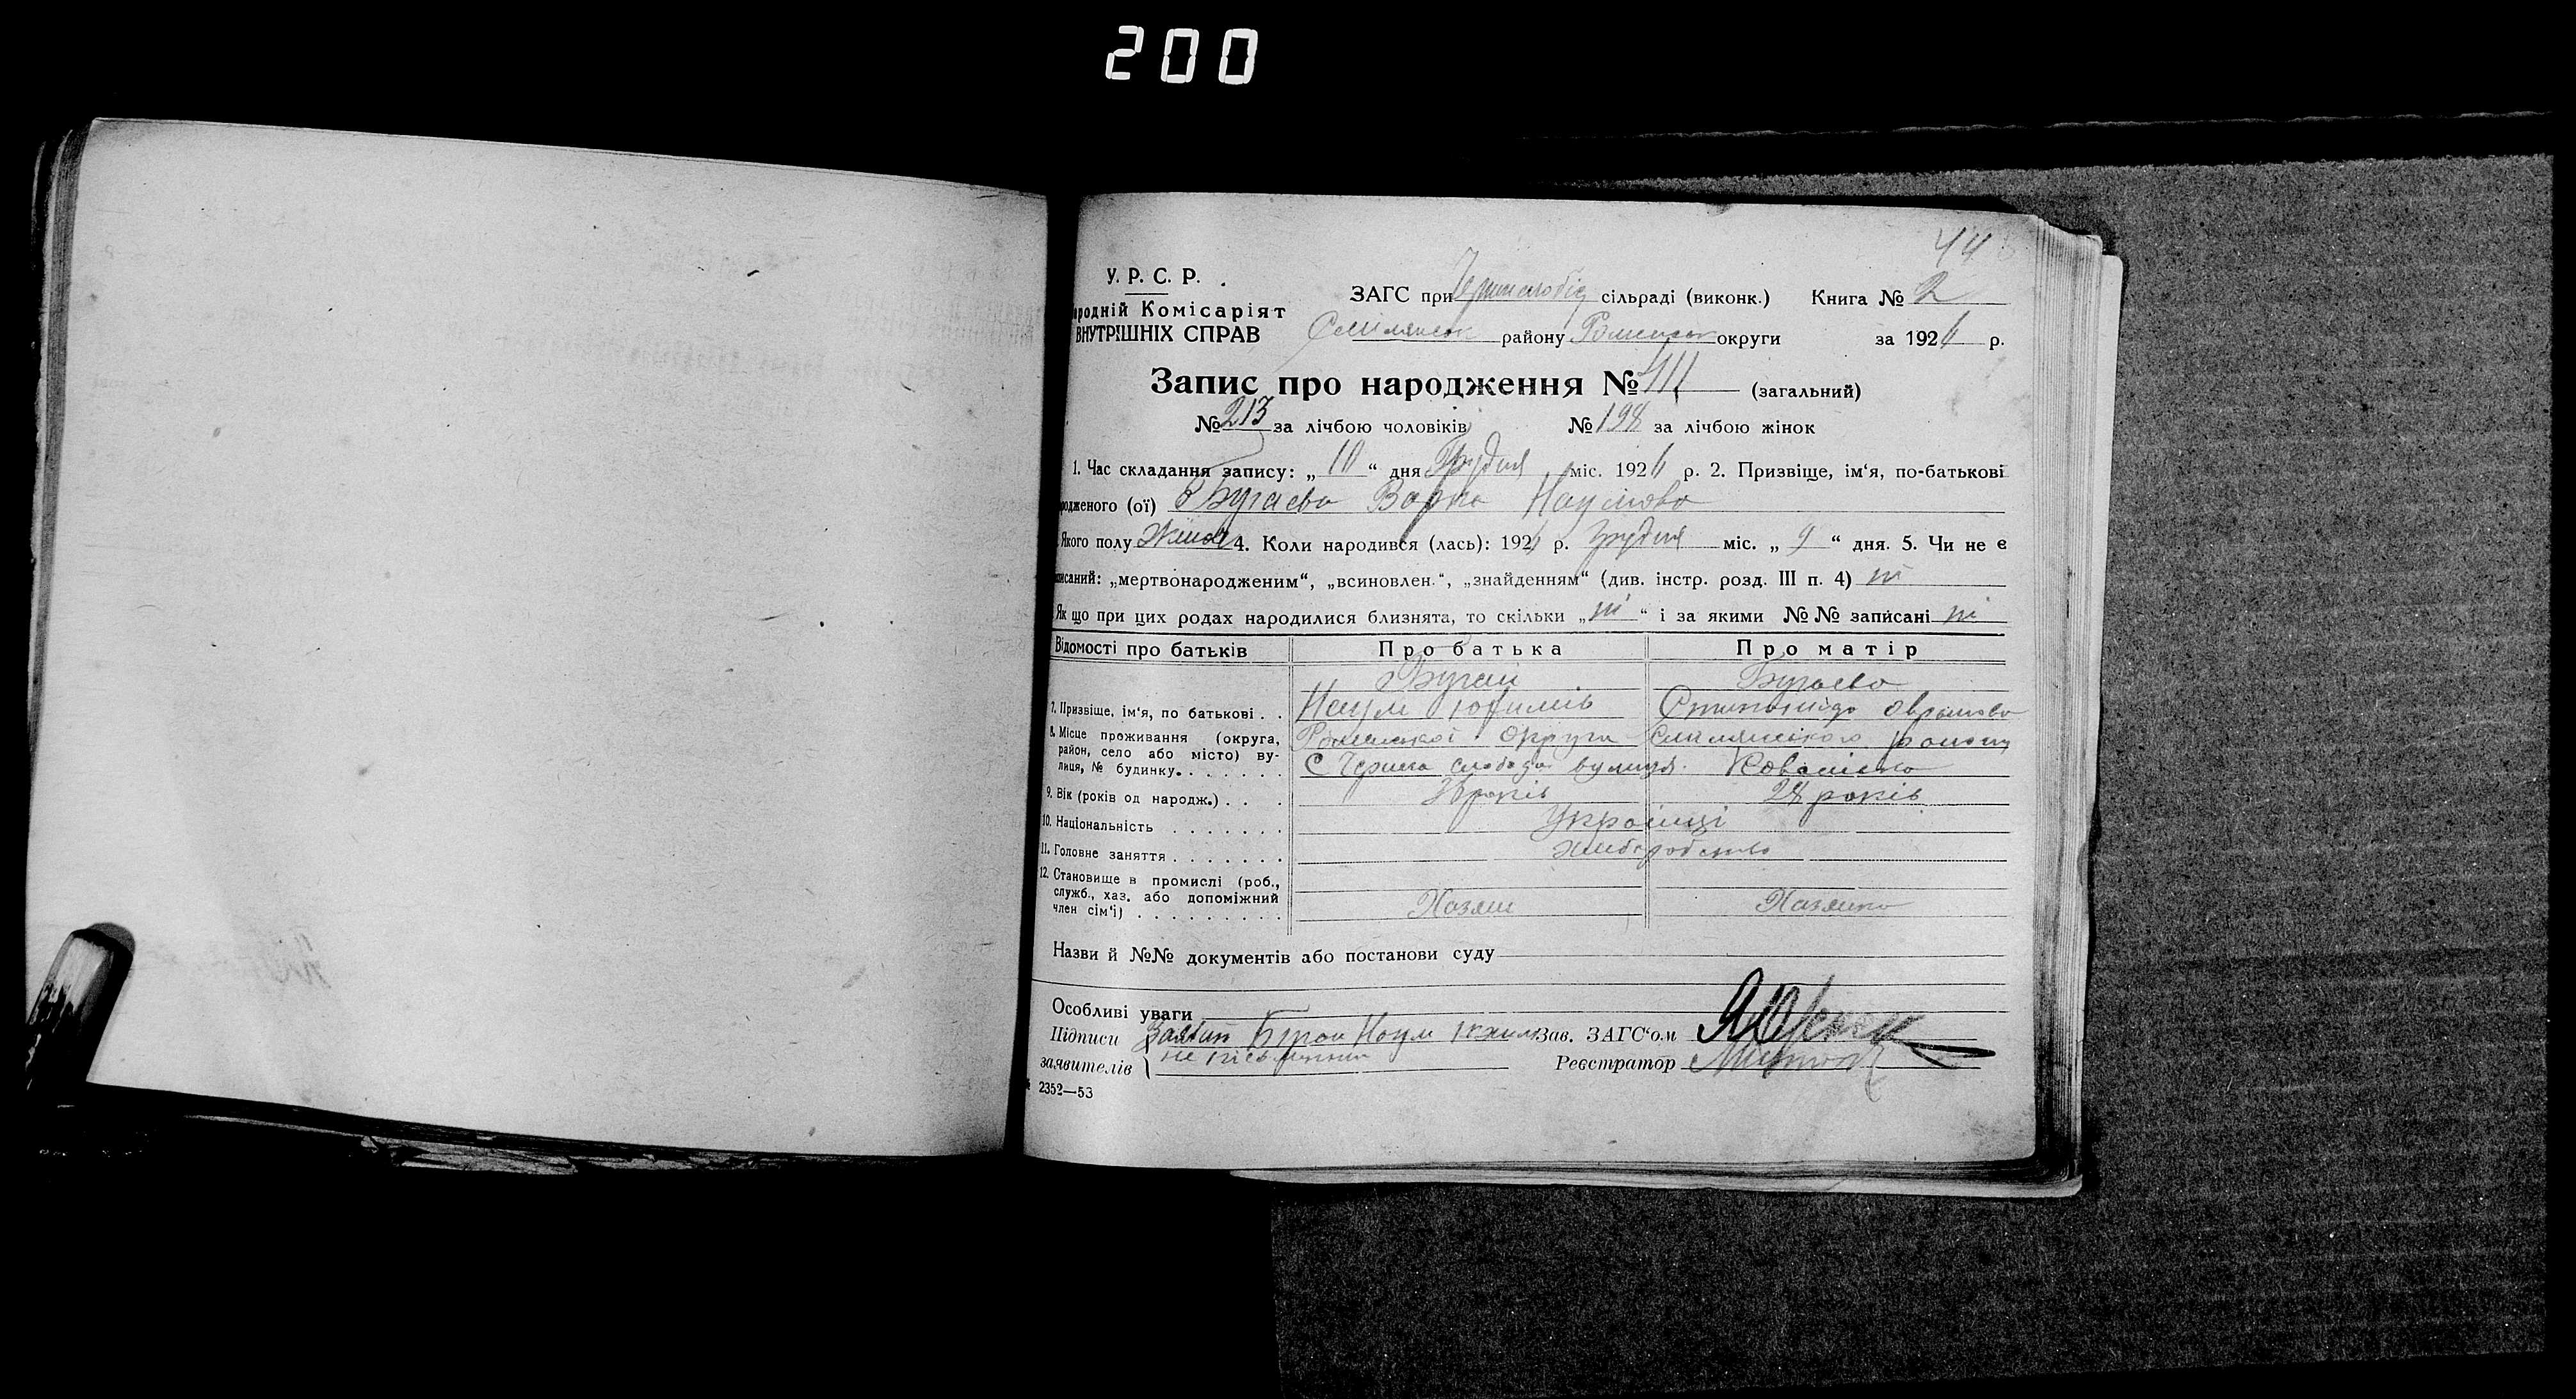 200
44
У. Р. С. Р.
ародній Комісаріят
ВНУТРІШНІХ СПРАВ
ЗАГС при Чернослобід сільраді (виконк.) Книга № 2
Смілянськ району Роменськ округи за 1926 р.
Запис про народження № 411 (загальний)
№ 213 за лічбою чоловіків № 198 за лічбою жінок
1. Час складання запису: „ 10 “ дня Грудня міс. 1926 р. 2. Призвіще, ім‘я, по-батькові
родженого (ої) Бугаєва Варка Наумова
Якого полу Жіноч 4. Коли народився (лась): 1926 р. грудня міс. „ 9 “ дня. 5. Чи не є
писаний: „мертвонародженим“, „всиновлен.“, „знайденням“ (див. інстр. розд. III п. 4) ні
Як що при цих родах народилися близнята, то скільки „ ні “ і за якими №№ записані ні
Відомості про батьків Про батька Про матір
Бугай Бугаєва
7. Призвіще, ім‘я, по батькові . . Наум Юхимів Степанида
8. Місце проживання (округа, район, село або місто) вулиця, № будинку. . . . . . . Роменської округи Смілянського району
С Черна слобода вулиця
9. Вік (років од народж.) . . . років 28 років
10. Національність . . . . . . . Українці
11. Головне заняття . . . . . . . хліборобство
12. Становище в промислі (роб.,
служб., хаз. або допоміжний
член сім‘ї) . . . . . . . . . Хазяїн Хазяйка
Назви й №№ документів або постанови суду
Особливі уваги
Підписи Бугай Наум Юхим Зав. ЗАГС‘ом
заявителів не письменний Реєстратор
2352—53